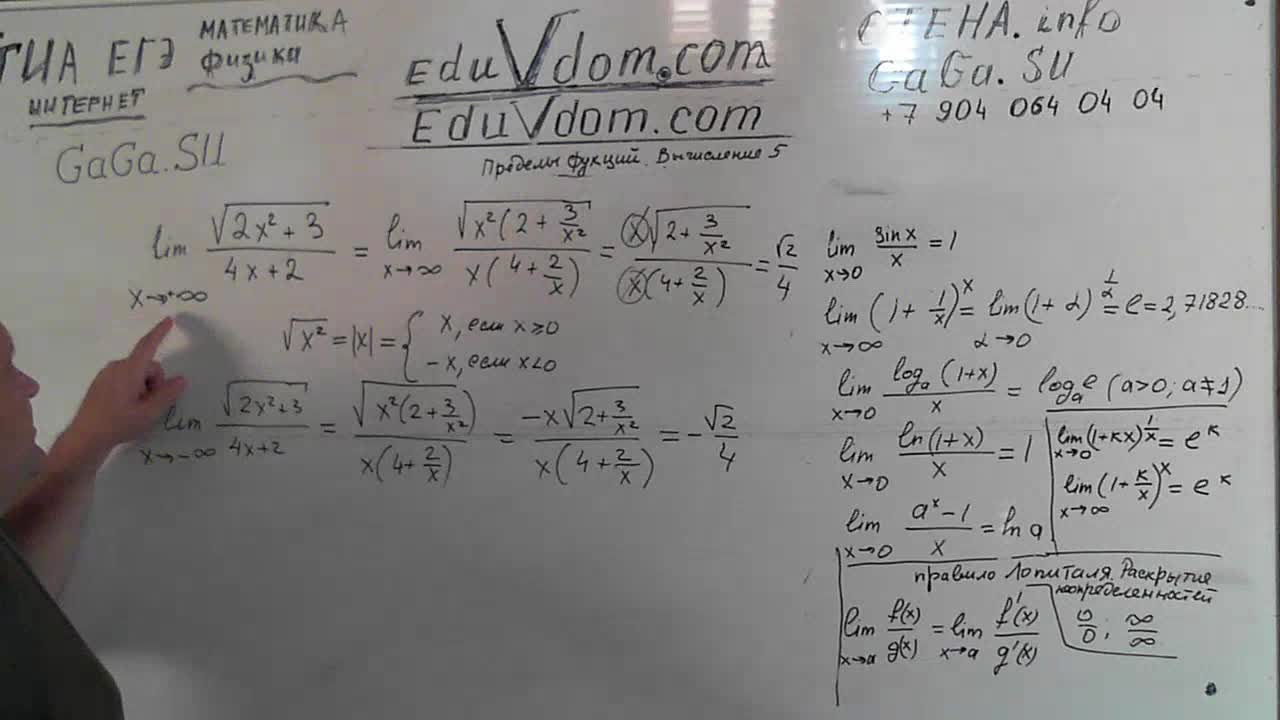 ГИА ЕГЭ МАТЕМАТИКА
физика
ИНТЕРНЕТ
GaGa.SU
EduVdom.com
EduVdom.com
Пределы фукций. Вычисление 5
СТЕНА.info
GaGa.SU
+7 904 064 04 04
lim x→+∞ √(2x²+3)/(4x+2) = lim x→∞ √(x²(2+3/x²))/(x(4+2/x)) = x√(2+3/x²)/(x(4+2/x)) = √2/4
√x² = |x| = { x, если x≥0
-x, если x<0
lim x→-∞ √(2x²+3)/(4x+2) = √(x²(2+3/x²))/(x(4+2/x)) = -x√(2+3/x²)/(x(4+2/x)) = -√2/4
lim x→0 sinx/x = 1
lim x→∞ (1+1/x)^x = lim α→0 (1+α)^(1/α) = e = 2,71828...
lim x→0 log_a(1+x)/x = log_a e (a>0; a≠1)
lim x→0 ln(1+x)/x = 1
lim x→0 (1+кx)^(1/x) = e^к
lim x→∞ (1+к/x)^x = e^к
lim x→0 (a^x-1)/x = ln a
правило Лопиталя. Раскрытие
неопределенностей
lim x→a f(x)/g(x) = lim x→a f'(x)/g'(x) 0/0; ∞/∞